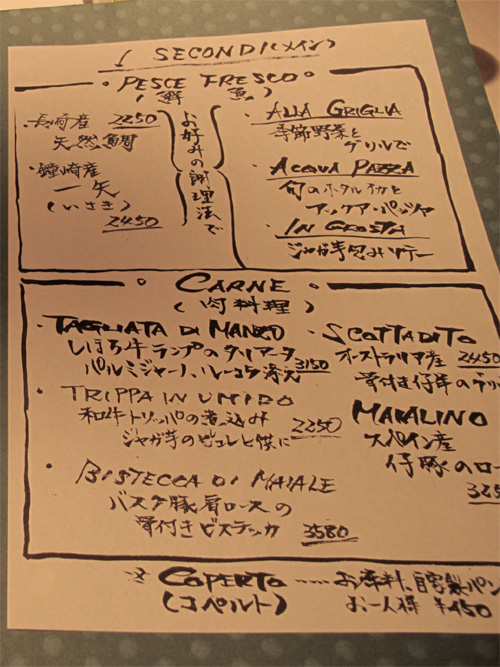 SECONDI(メイン)
PESCE FRESCO
(鮮魚)
・長崎産 2250
天然鯛
・鐘崎産
一矢
(いさき)
2450
お好みの調理法で
・ALLA GRIGLIA
季節野菜と
グリルで
・ACQUA PAZZA
旬のホタルイカと
アックア・パッツァ
・IN CROSTA
ジャガ芋包みソテー
CARNE
(肉料理)
・TAGLIATA DI MANZO
しほろ牛ランプのタリアータ
パルミジャーノ、ルーコラ添え 3150
・TRIPPA IN UMIDO
和牛トリッパの煮込み
ジャガ芋のピュレと供に 2250
・BISTECCA DI MAIALE
バスク豚肩ロースの
骨付きビステッカ 3580
・SCOTTADITO
オーストラリア産 2450
骨付き仔羊のグリ
MAIALINO
スペイン産
仔豚のロー
COPERTO ・・・・・ お席料、自家製パン
(コペルト) お一人様 ¥450